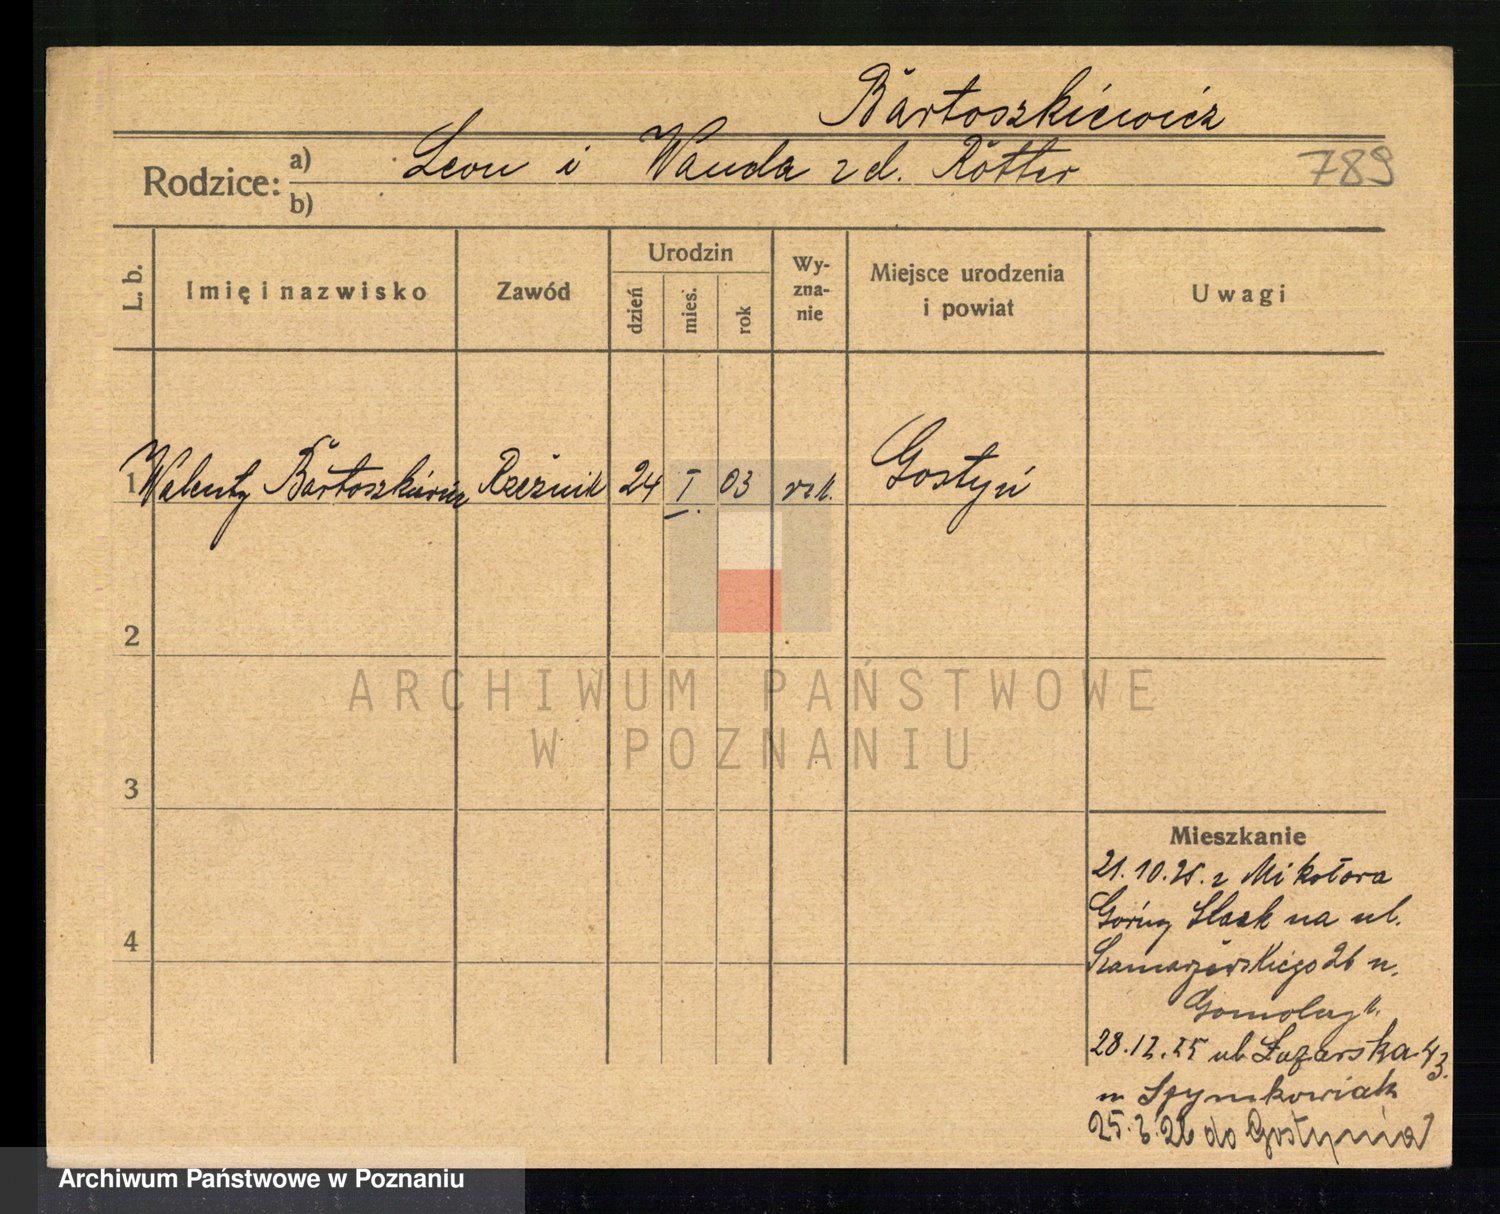 Bartoszkiewicz
Rodzice: a) Leon i Wanda z d. Rötter 789
b)
L. b. Imię i nazwisko Zawód Urodzin dzień mies. rok Wy-zna-nie Miejsce urodzenia i powiat Uwagi
1 Walenty Bartoszkiewicz Rzeźnik 24 I. 03 rzk. Gostyń
2
ARCHIWUM PAŃSTWOWE
W POZNANIU
3
Mieszkanie
21.10.25. z Mikołowa
Górny Śląsk na ul.
4
Szamarzewskiego 26 u.
28.12.25 ul. Łazarska 43.
u Szymkowiak
25.3.26 do Gostynia
Archiwum Państwowe w Poznaniu